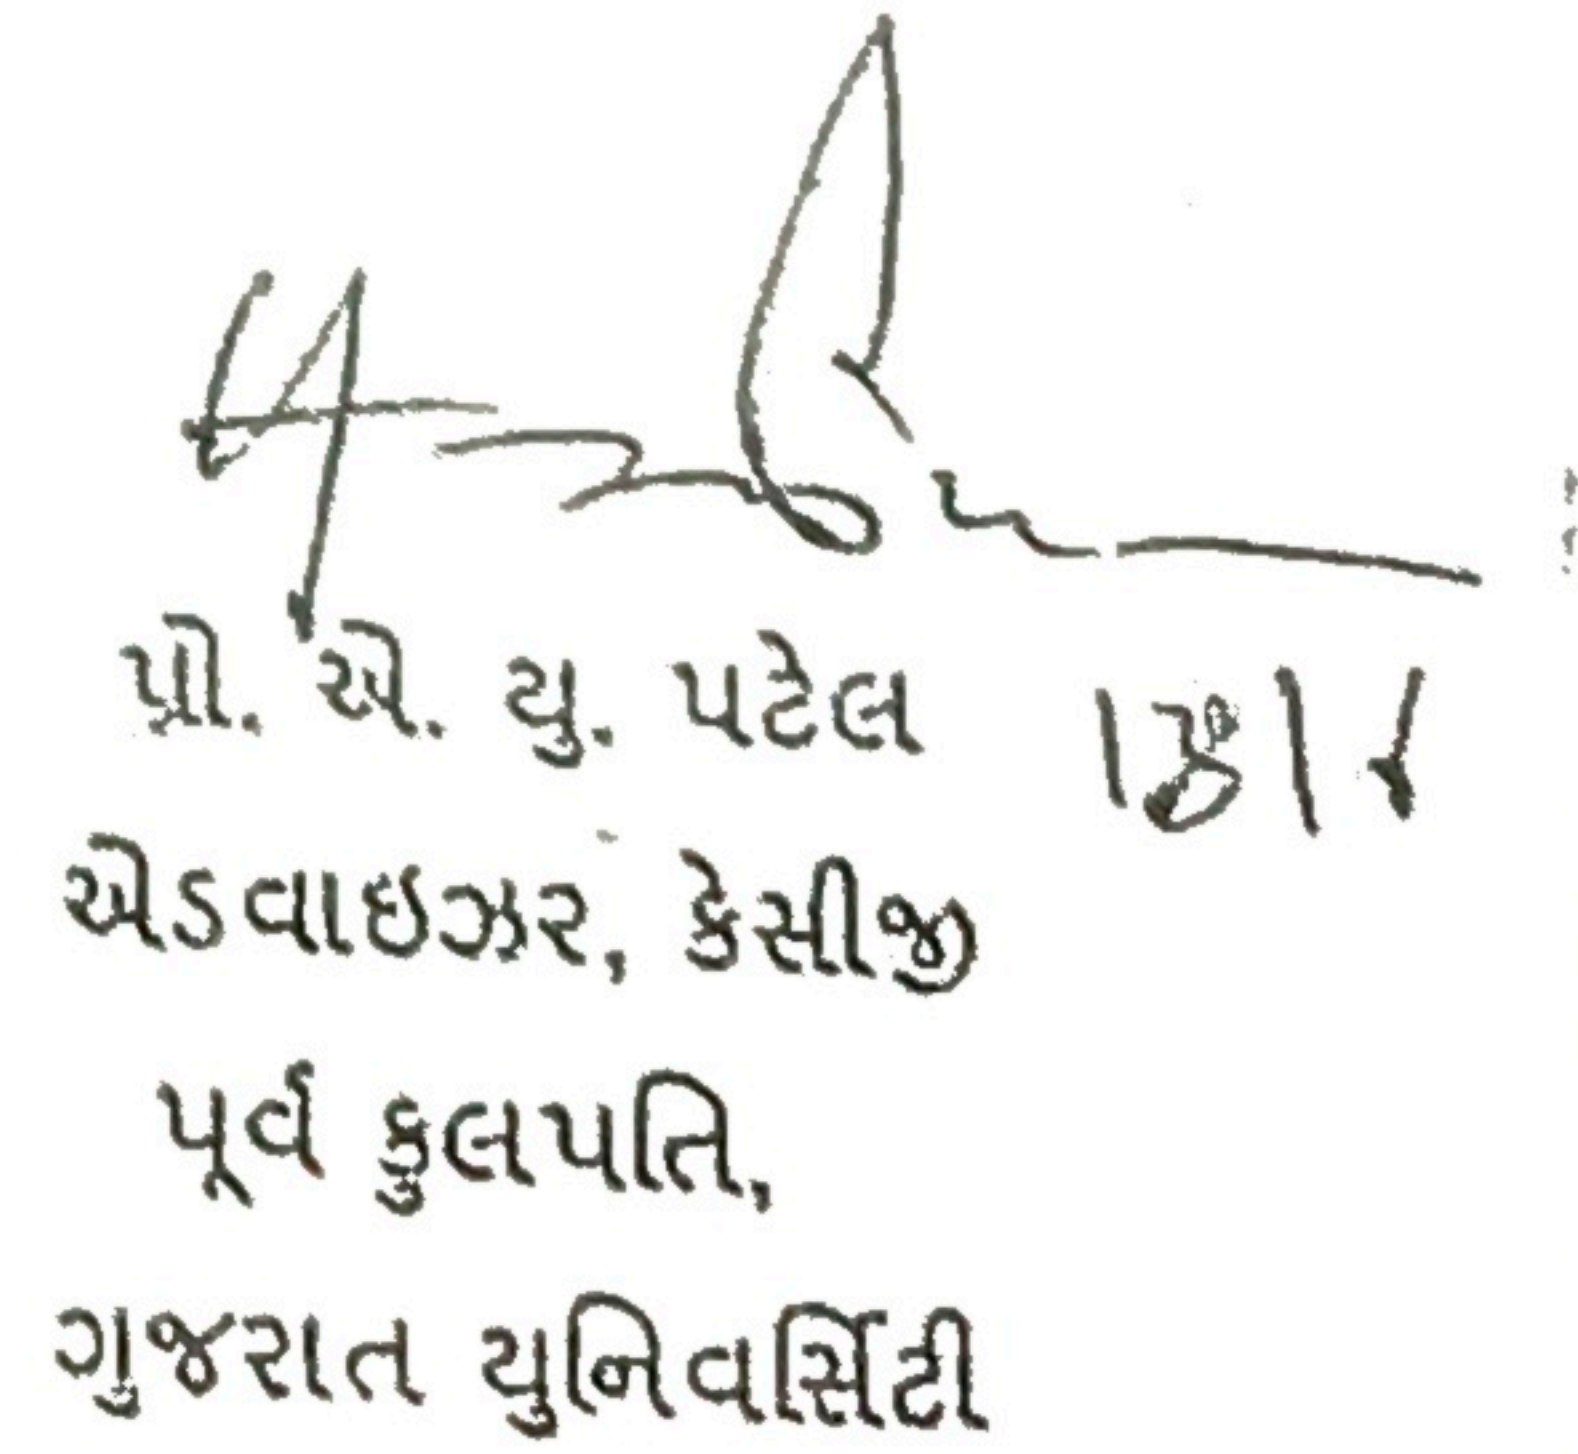 પ્રો. એ. યુ. પટેલ
એડવાઇઝર, કેસીજી
પૂર્વ કુલપતિ,
ગુજરાત યુનિવર્સિટી